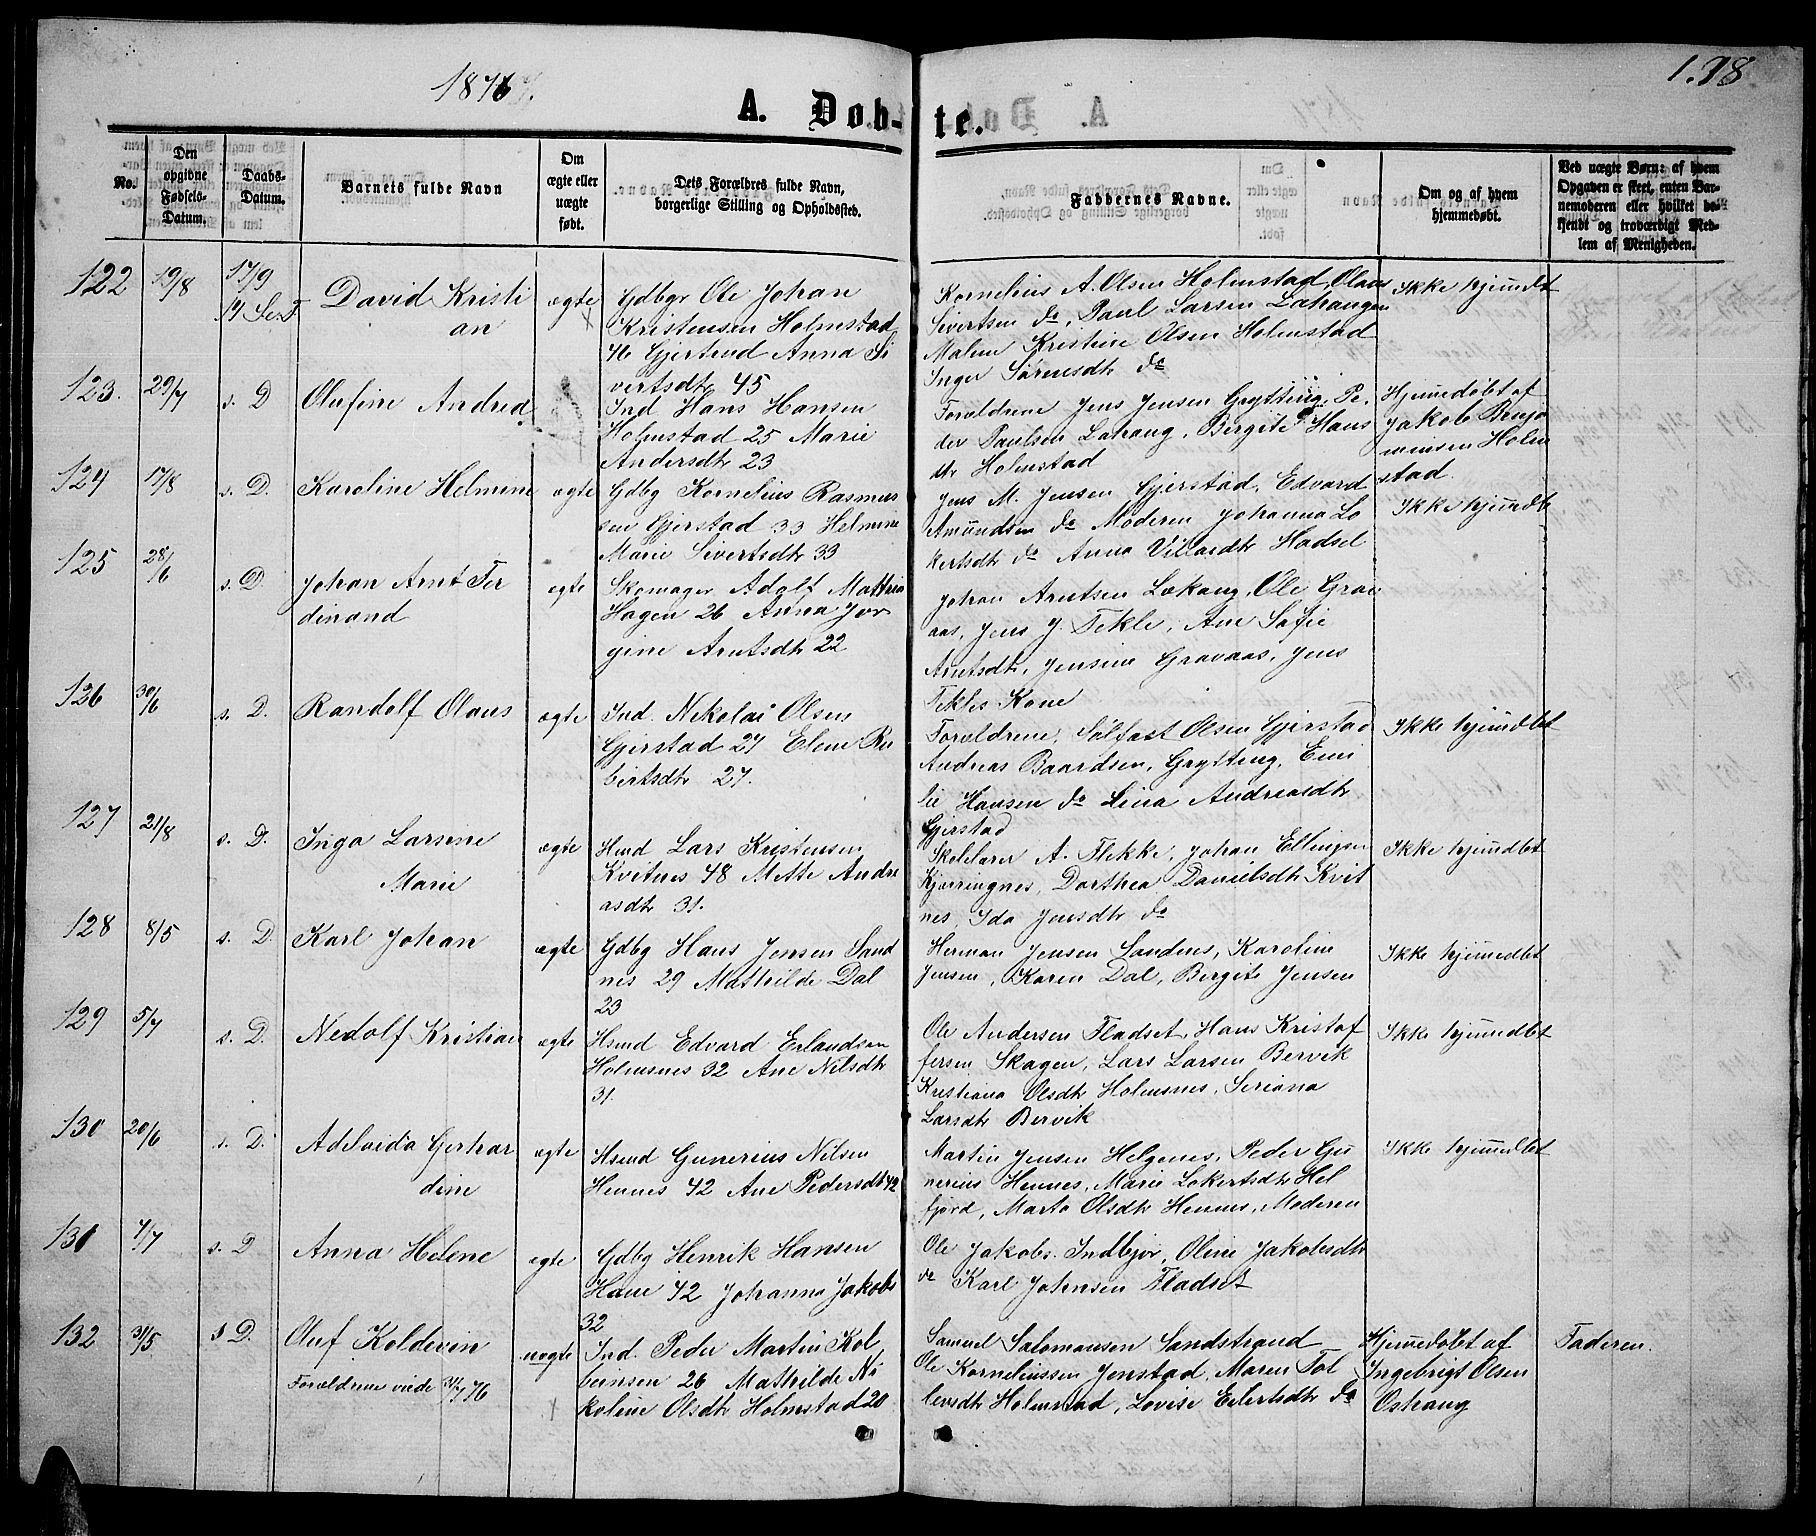 1876.
178
A. Døb-te.
No.
Den opgivne Fødsels-Datum.
Daabs-Datum.
Barnets fulde Navn
Om ægte eller uægte født.
Dets Forældres fulde Navn, borgerlige Stilling og Opholdssted.
Faddernes Navne.
Om og af hvem hjemmedøbt.
Ved uægte Børn: af hvem Opgaven er skeet, enten Barnemoderen eller hvilket bekjendt og troværdigt Medlem af Menigheden.
122 19/8 17/9 David Kristi
an
ægte
Gdbgr Ole Johan
Kristensen Holmstad
46 Gjertrud Anna Si
vertsdtr 45
Kornelius A. Olsen Holmstad, Olaus
Sivertsen do, Paul Larsen Lahaugen
Malene Kristine Olsen Holmstad
Inger Sørensdtr do
Ikke hjemdbt
123. 29/7 s. D Olufine Andrea
Ind Hans Hansen
Holmstad 25 Marie
Andersdtr 23
Forældrene Jens Jensen Grytting, Pe-
der Paulsen Lahaug, Bergite Hans
dtr Holmstad
Hjemedøbt af
Jakob Benja
minsen Holm
stad.
124 17/8 s. D. Karoline Helmine ægte
Gdbg Kornelius Rasmus
sen Gjerstad 33 Helmine
Marie Sivertsdtr 33
Jens M. Jensen Gjerstad, Edvard
Amundsen do Moderen Johanna Lo
kertsdtr do Anna Villardtr Hadsel
Ikke hjemdbt
125 28/6 s. D. Johan Arnt Fer
dinand
ægte
Skomager Adolf Mathias
Hagen 26 Anna Jør
gine Arntsdtr 22
Johan Arntsen Lokang, Ole Grav
aas, Jens J. Tekle, Ane Sofie
Arntsdtr, Jensine Gravaas, Jens
Tekles Kone
126 30/6 s. D. Randolf Olaus ægte
Ind. Nikolai Olsen
Gjerstad 27 Elene Ru
bertsdtr 27.
Forældrene, Sølfast Olsen Gjerstad
Andreas Baardsen, Grytting, Emi
lie Hansen do Lina Andreasdtr
Gjerstad
Ikke hjemdbt
127 21/8 s. D. Inga Larsine
Marie
ægte
Hmd Lars Kristensen
Kvitnes 48 Mette Andre
asdtr 31.
Skolelærer A. Flekke, Johan Ellingsen
Kjørringnes, Dorthea Danielsdtr Kvit
nes, Ida Jensdtr do
Ikke hjemdbt
128 8/5 s. D. Karl Johan ægte
Gdbg Hans Jensen Sand
nes 29 Mathilde Dal
23
Herman Jensen Sandnes, Karoline
Jensen, Karen Dal, Bergite Jensen
Ikke hjemdbt
129 5/7 s. D. Nedolf Kristian ægte
Hsmd Edvard Erlandsen
Holmsnes 32 Ane Nilsdtr
31.
Ole Andersen Fladset, Hans Kristof
fersen Skagen, Lars Larsen Bervik
Kristiana Olsdtr Holmsnes, Seriana
Larsdtr Bervik
Ikke hjemdbt
130 20/6 s. D. Adelaida Gerhar
dine
ægte
Hsmd Gunerius Nilsen
Hennes 42 Ane Pedersdtr 42
Martin Jensen Helgenes, Peder Gu
nerius Hennes, Marie Lokertsdtr Hel
fjord, Marta Olsdtr Hennes, Moderen
Ikke hjemdbt
131 4/7 s. D Anna Helene ægte
Gdbg Henrik Hansen
Haue 42 Johanna Jakobs
32
Ole Jakobs. Indbjor, Oline Jakobsdtr
do Karl Johnsen Fladset
132 31/5 s D. Oluf Koldevin
Forældrene viede 31/7 76
uægte
Ind. Peder Martin Kol
bensen 26 Mathilde Ni
koline Olsdtr Holmstad 20
Samuel Salomonsen Sandstrand
Ole Korneliussen Jenstad, Maren Tol
levsdtr Holmstad, Lovise Eilertsdtr do
Hjemedøbt af
Ingebrigt Olsen
Oshaug
Faderen.